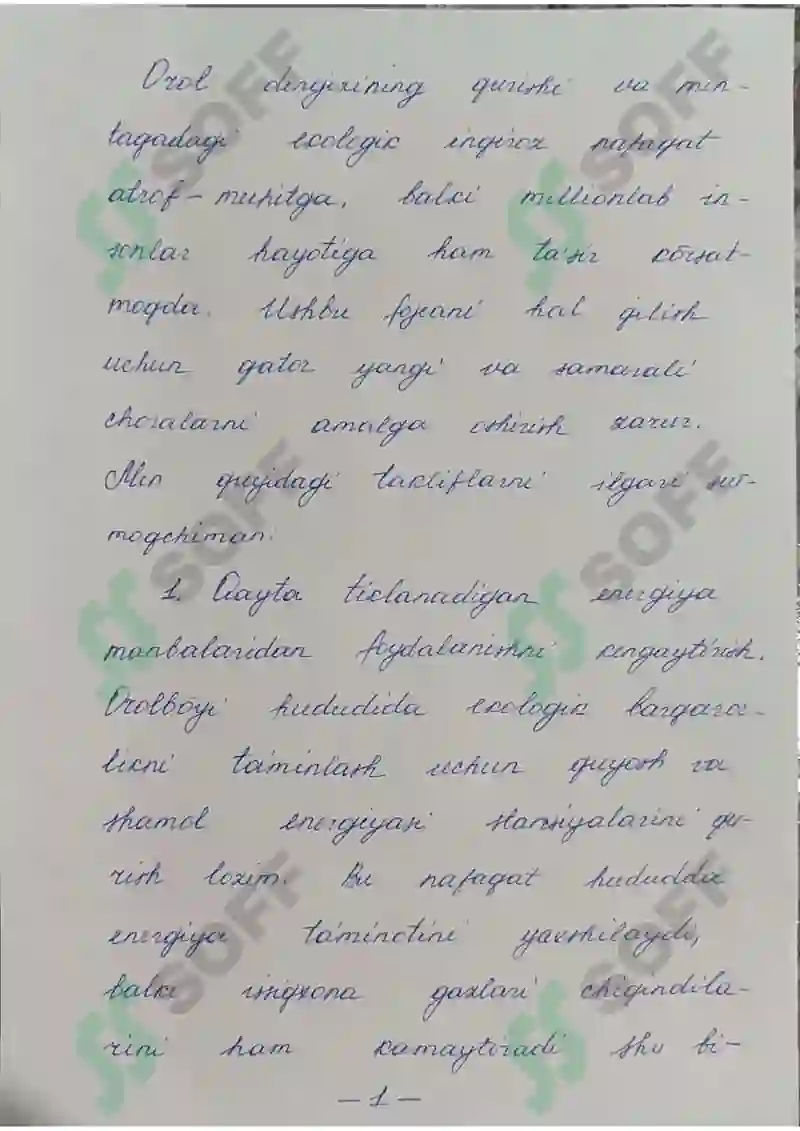 Orol dengizining qurishi va min-
taqadagi ekologik inqiroz nafaqat
atrof-muhitga, balki millionlab in-
sonlar hayotiga ham ta'sir ko'rsat-
moqda. Ushbu fojeani hal qilish
uchun qator yangi va samarali
choralarni amalga oshirish zarur.
Men quyidagi takliflarni ilgari sur-
moqchiman:
1. Qayta tiklanadigan energiya
manbalaridan foydalanishni kengaytirish.
Orolbo'yi hududida ekologik barqaror-
likni ta'minlash uchun quyosh va
shamol energiyasi stansiyalarini qu-
rish lozim. Bu nafaqat hududda
energiya ta'minotini yaxshilaydi,
balki issiqxona gazlari chiqindila-
rini ham kamaytiradi shu bi-
—1—
SOFF
SOFF
SOFF
SOFF
SOFF
SOFF